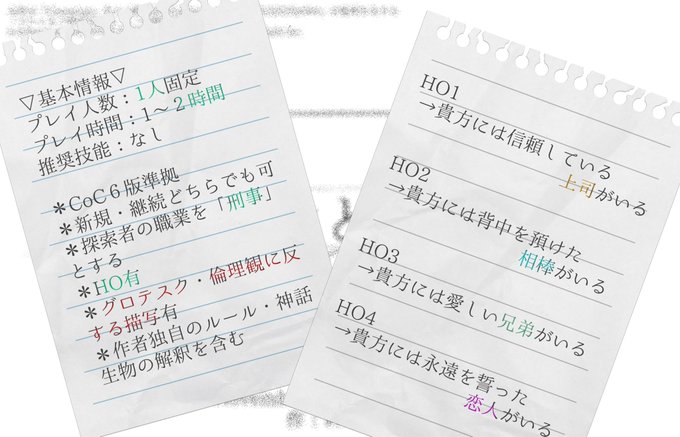 ▽基本情報▽
プレイ人数：1人固定
プレイ時間：1～2時間
推奨技能：なし
＊CoC6版準拠
＊新規・継続どちらでも可
＊探索者の職業を「刑事」
とする
＊HO有
＊グロテスク・倫理観に反
する描写有
＊作者独自のルール・神話
生物の解釈を含む
HO1
→貴方には信頼している
上司がいる
HO2
→貴方には背中を預けた
相棒がいる
HO3
→貴方には愛しい兄弟がいる
HO4
→貴方には永遠を誓った
恋人がいる